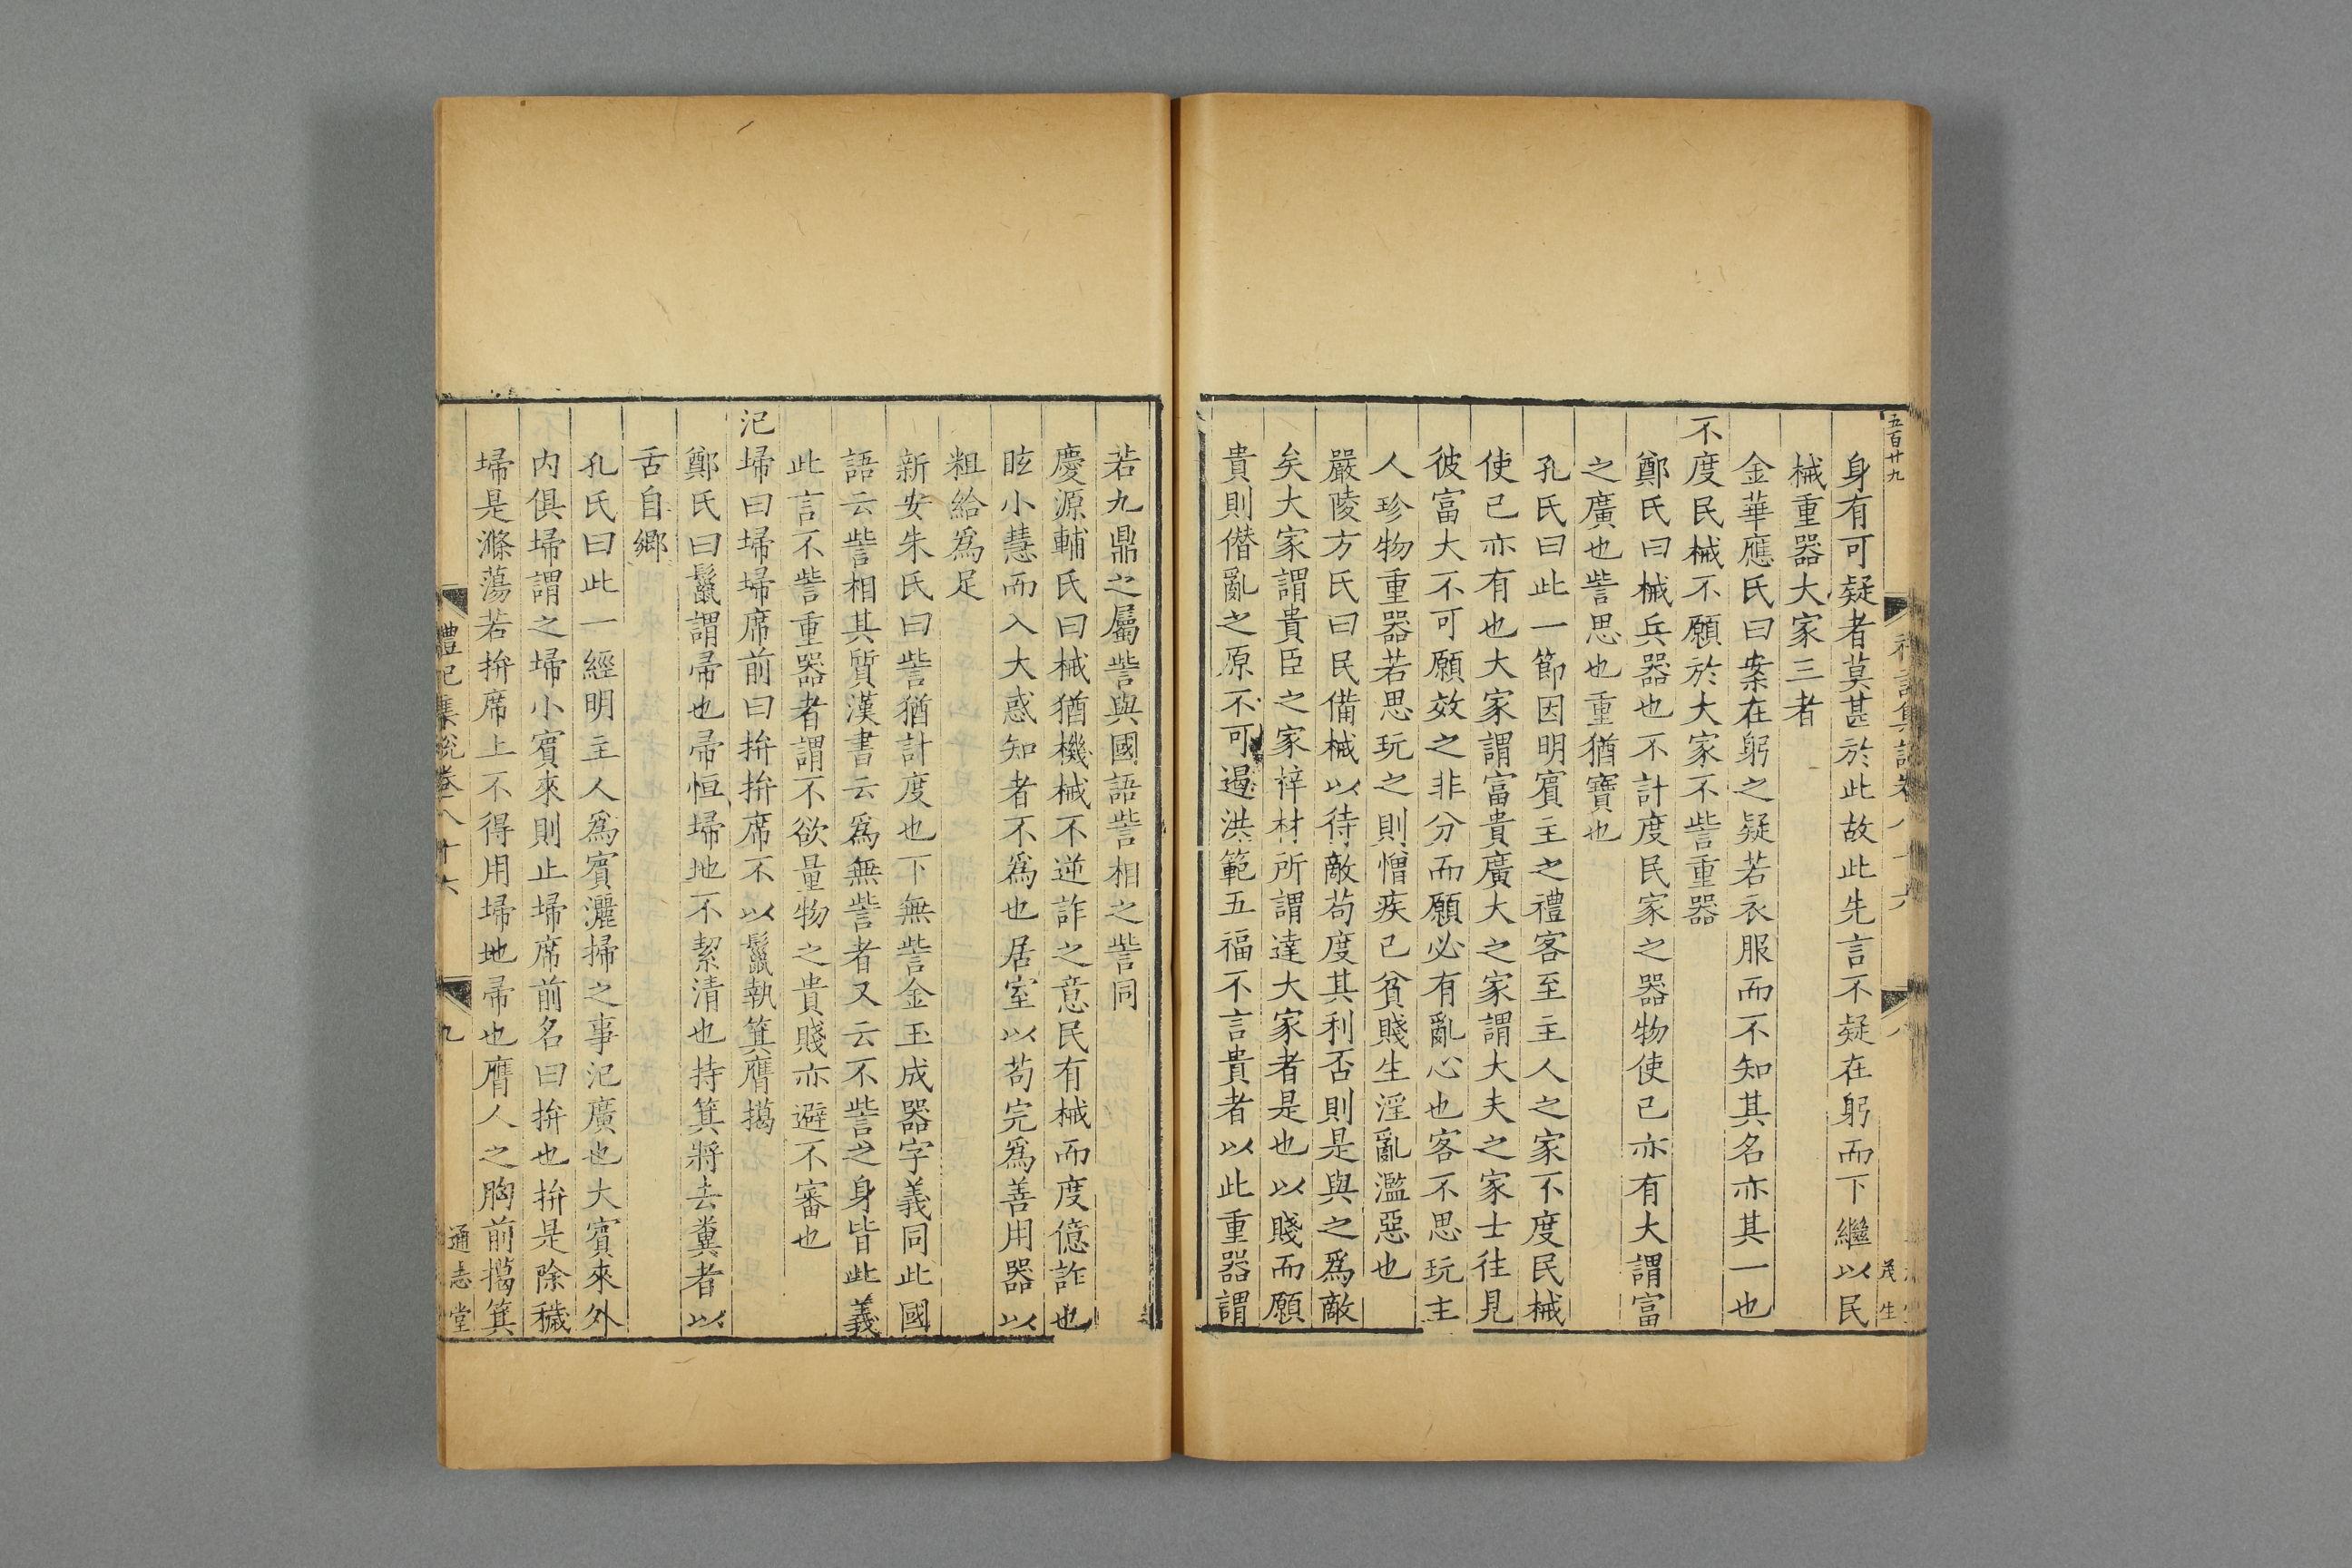 五百廿九
身有可疑者莫甚於此故此先言不疑在躬而下繼以民
械重器大家三者
金華應氏曰案在躬之疑若衣服而不知其名亦其一也
不度民械不願於大家不訾重器
鄭氏曰械兵器也不計度民家之器物使己亦有大謂富
之廣也訾思也重猶寶也
孔氏曰此一節因明賓主之禮客至主人之家不度民械
使已亦有也大家謂富貴廣大之家謂大夫之家士往見
彼富大不可願效之非分而願必有亂心也客不思玩主
人珍物重器若思玩之則憎疾己貧賤生淫亂濫惡也
嚴陵方氏曰民備械以待敵苟度其利否則是與之爲敵
矣大家謂貴臣之家梓材所謂達大家者是也以賤而願
貴則僭亂之原不可遏洪範五福不言貴者以此重器謂
若九鼎之屬訾與國語訾相之訾同
慶源輔氏曰械猶機械不逆詐之意民有械而度億詐也
眩小慧而入大惑知者不爲也居室以苟完爲善用器以
粗給爲足
新安朱氏曰訾猶計度也下無訾金玉成器字義同此國
語云訾相其質漢書云爲無訾者又云不訾之身皆此義
此言不訾重器者謂不欲量物之貴賤亦避不審也
氾埽曰埽埽席前曰拚拚席不以鬛執箕膺擖
鄭氏曰鬛謂帚也帚恒埽地不絜清也持箕將去糞者以
舌自鄉
孔氏曰此一經明主人爲賓灑掃之事氾廣也大賓來外
内俱埽謂之埽小賓來則止埽席前名曰拚也拚是除穢
埽是滌蕩若拚席上不得用埽地帚也膺人之胸前擖箕
禮記集說卷八十六
九
通志堂